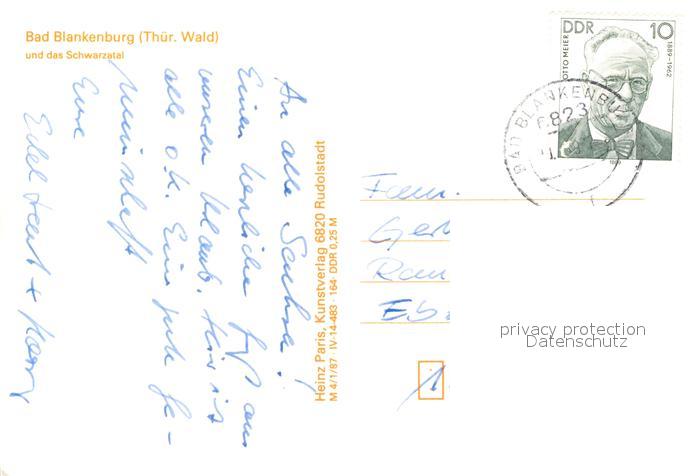 Bad Blankenburg (Thür. Wald)
und das Schwarzatal
An alle Sachse!
Einen herzliche Gruß aus
unseren Urlaub. Hier ist
alle o.k. Eine gute Ge-
meinschaft
Eure
Edeltraut +
Heinz Paris, Kunstverlag 6820 Rudolstadt
M 4/1/87 · IV-14-483 · 164 · DDR 0,25 M
DDR 10
OTTO MEIER 1889–1962
BAD BLANKENBU
6823
Fam.
E.b.
privacy protection
Datenschutz